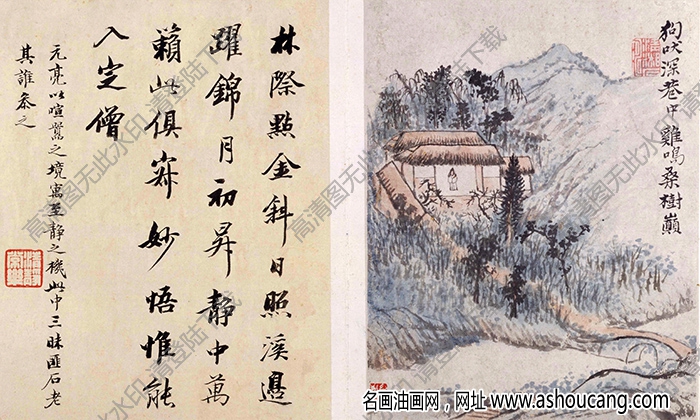 狗吠深巷中雞鳴桑樹巔
林際點金斜日照溪邊
躍錦月初昇靜中萬
籟此俱寂妙悟惟能
入定僧
元亮以喧囂之境寫至靜之機此中三昧匪石老
其誰參之
高清图无此水印,请登陆下载
名画油画网，网址 www.ashoucang.com